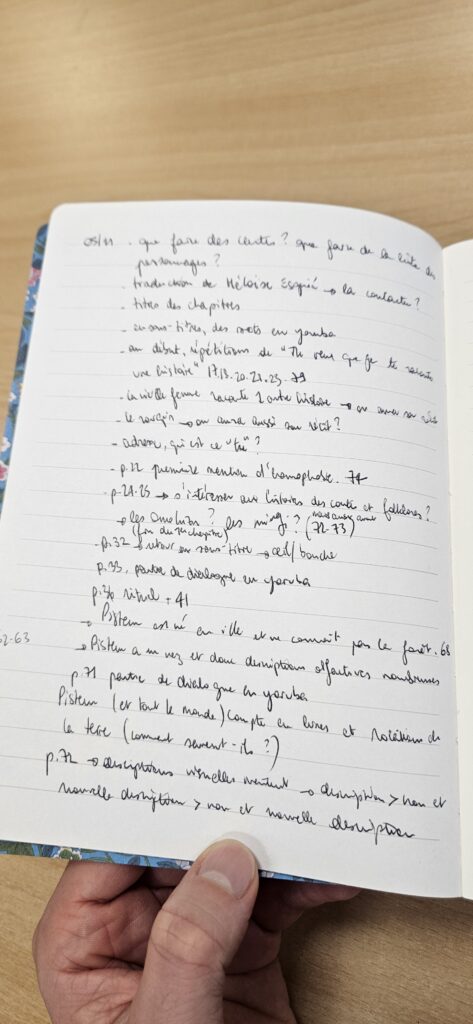 05/11 . que faire des cartes ? que faire de la liste des
personnages ?
- traduction de Héloïse Esquié → la contacter ?
- titres des chapitres
- en sous-titres, des mots en yoruba
- au début, répétitions de "Tu veux que je te raconte
une histoire" 17.18.20.21.23. 79
- la vieille femme raconte 1 autre histoire → on aura son récit
- le → on aura aussi son récit ?
- adresse, qui est ce "tu" ?
- p.22 première mention d'homophobie. 74
- p.21.23 → s'intéresser aux histoires des contes et folklores ?
→ les ? les ? (72-73)
(fin du chapitre)
- p.32 → retour en sous-titre → œil/bouche
p.33, partie de dialogue en yoruba
p.36 rituel + 41
→ Pistem est né en ville et ne connaît pas la forêt. 68
62-63
→ Pistem a un nez et donc descriptions olfactives nombreuses
p.71 partie de dialogue en yoruba
Pistem (et tout le monde) compte en lunes et rotations de
la terre (comment savent-ils ?)
p.72 → descriptions visuelles → description > nom et
nouvelle description > nom et nouvelle description